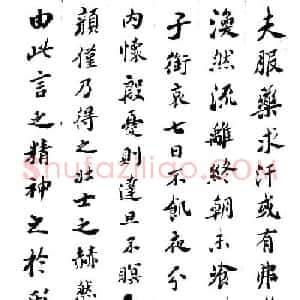 夫服藥求汗或有弗
渙然流離終朝未
子銜哀七日不飢夜分
內懷殷憂則達旦不瞑
顏僅乃得之壯士之赫然
由此言之精神之於
Shufaziliao.COM